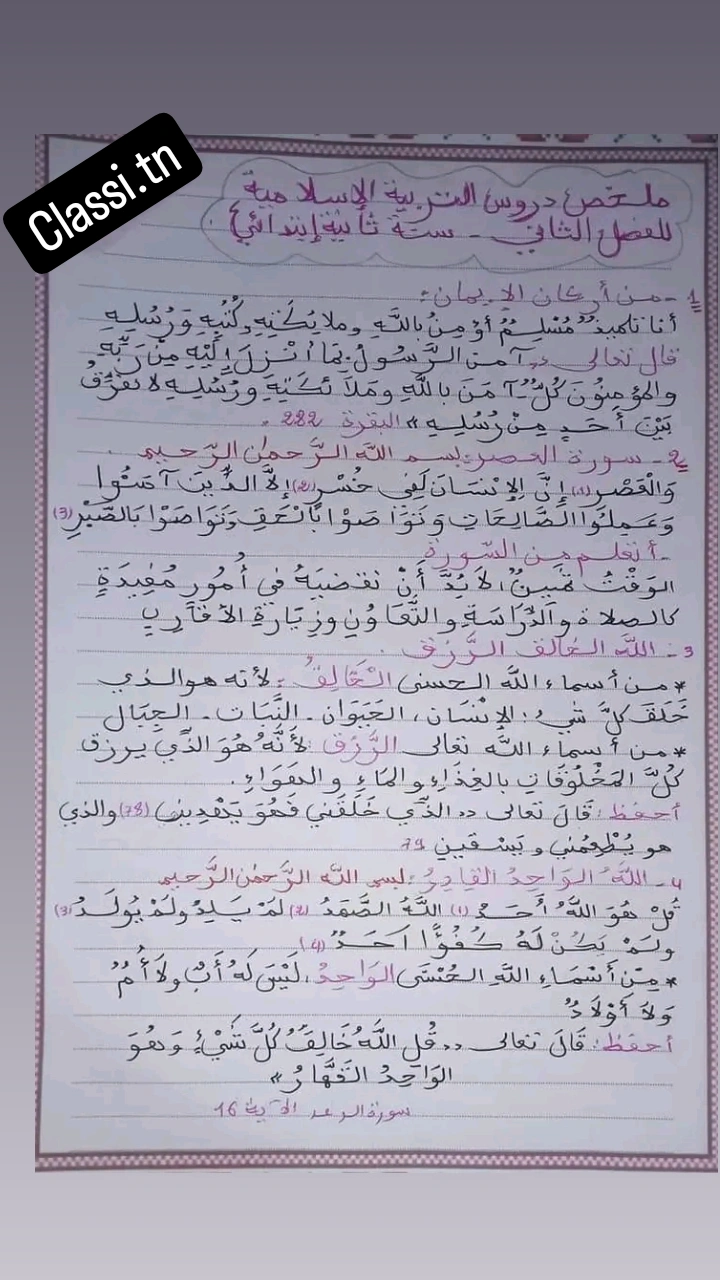 Classi.tn
ملخص دروس التربية الإسلامية
للفصل الثاني - سنة ثانية إبتدائي
1 - من أركان الإيمان:
أنا تلميذٌ مُسْلِمٌ أؤمِنُ بِاللَّهِ وملائِكَتِهِ وكُتُبِهِ وَرُسُلِهِ
قال تعالى «آمن الرَّسُولُ بِمَا أُنْزِلَ إِلَيْهِ مِنْ رَبِّهِ
والمؤمِنُونَ كُلٌّ آمَنَ بِاللَّهِ ومَلَائِكَتِهِ ورُسُلِهِ لا نُفَرِّقُ
بَيْنَ أَحَدٍ مِنْ رُسُلِهِ» البقرة 282.
2 - سورة العصر: بسم اللَّه الرَّحمٰن الرَّحيم.
وَالْعَصْرِ (1) إِنَّ الإِنْسَانَ لَفِي خُسْرٍ (2) إِلَّا الَّذِينَ آمَنُوا
وَعَمِلُوا الصَّالِحَاتِ وَتَوَاصَوْا بِالْحَقِّ وَتَوَاصَوْا بِالصَّبْرِ (3)
- أتعلم من السُّورة
الوَقْتُ ثَمِينٌ، لَا بُدَّ أَنْ نقضيَهُ في أُمُورٍ مُفِيدَةٍ
كالصلاة والدِّرَاسَةِ والتَّعَاوُنِ وزِيَارَةِ الأَقَارِبِ
3 - اللَّه الخالق الرَّزَّاق.
* من أسماء اللَّه الحسنى الْخَالِقُ: لأنه هو الذي
خَلَقَ كلَّ شيءٍ: الإِنْسَان، الحَيَوَان - النَّبَات - الجِبَال
* من أسماء اللَّه تعالى الرَّزَّق: لأَنَّهُ هُوَ الذَّي يرزق
كُلَّ المَخْلُوقَاتِ بالغِذَاءِ والمَاءِ والهَوَاءِ.
أحفظ: قَالَ تعالى «الذَّي خَلَقَنِي فَهُوَ يَهْدِينِي (78) والذي
هو يُطْعِمُنِي ويَسْقِينِ 79
4 - اللَّهُ الوَاحِدُ القَادِرُ: بسم اللَّه الرَّحمٰن الرَّحيم
قُلْ هُوَ اللَّهُ أَحَدٌ (1) اللَّهُ الصَّمَدُ (2) لَمْ يَلِدْ ولَمْ يُولَدُ (3)
ولَمْ يَكُنْ لَهُ كُفُؤًا أَحَدٌ (4)
* مِنْ أَسْمَاءِ اللَّهِ الحُسْنَى الوَاحِدُ، لَيْسَ لَهُ أَبٌ ولَا أُمٌّ
وَلَا أَوْلَادٌ
أحفظ: قَالَ تعالى «قُلِ اللَّهُ خَالِقُ كُلَّ شَيْءٍ وَهُوَ
الوَاحِدُ القَهَّارُ»
سورة الرعد الآية 16